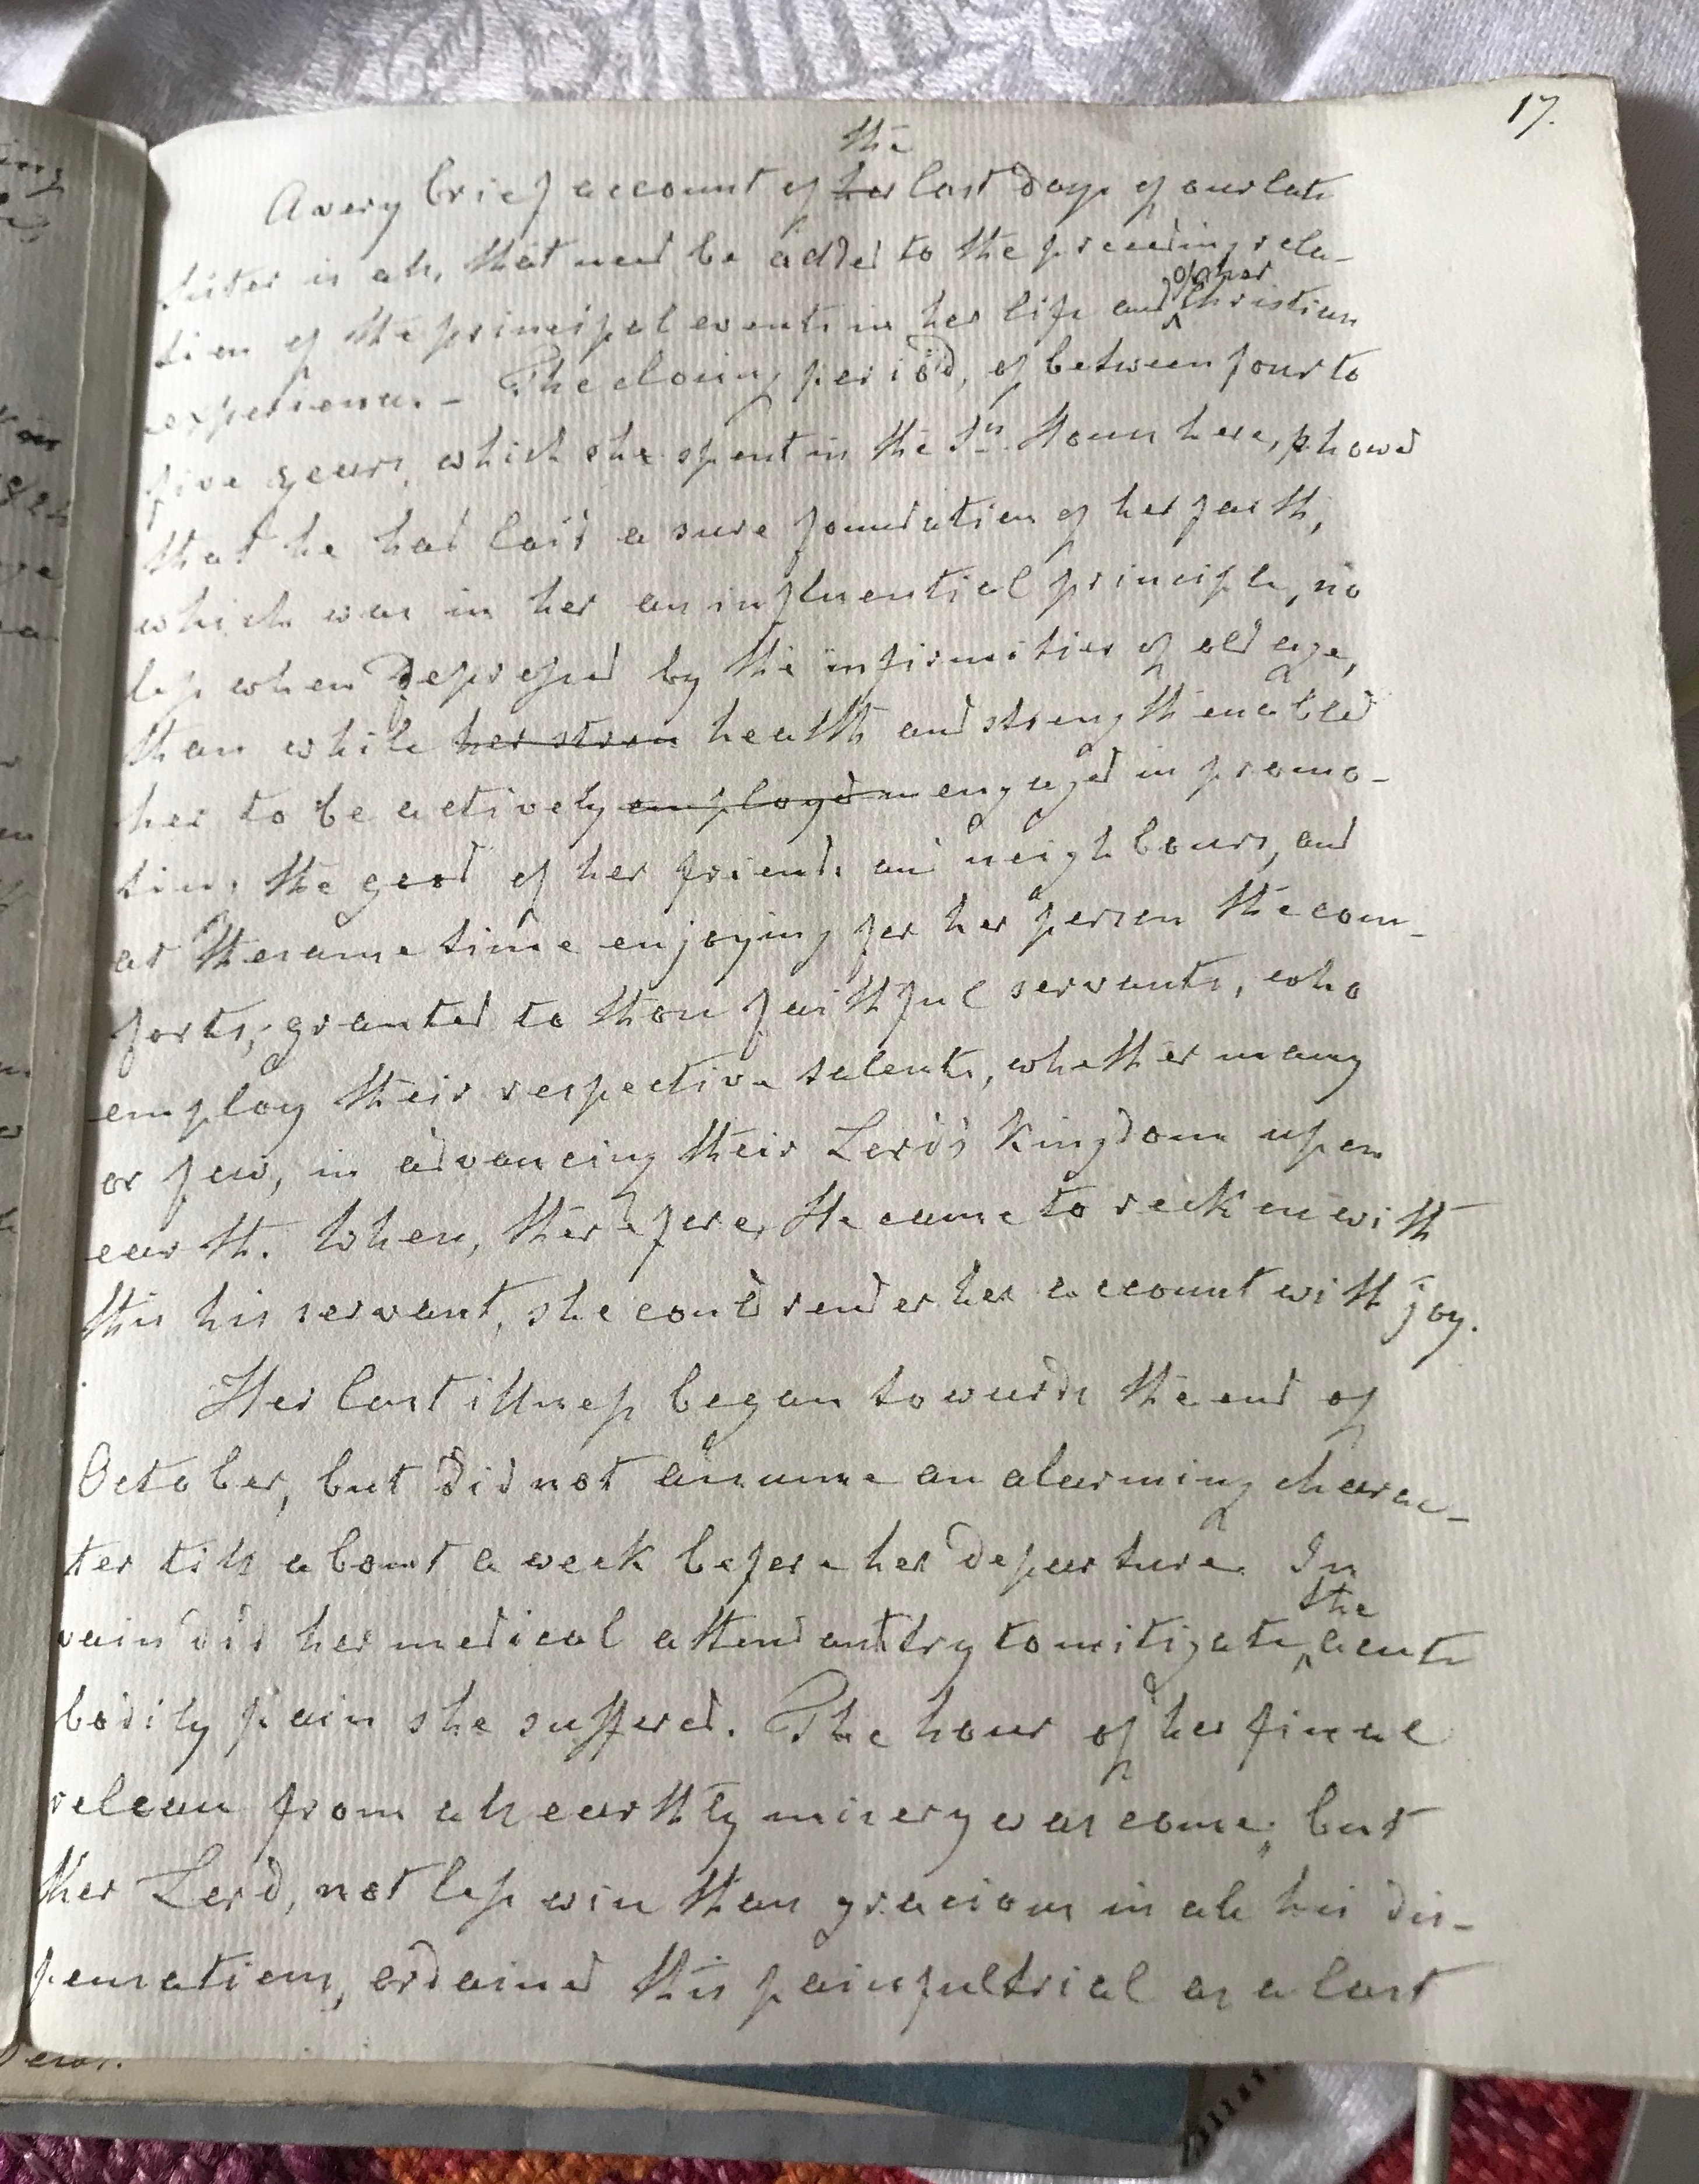 17.
the
A very brief account of her last days of our late
Sister is all, that need be added to the preceeding rela-
of her
tion of the principal events in her life and Christian
experience. - The closing period, of between four to
five years, which she spent in the Srs. House here, showd
that he had laid a sure foundation of her faith,
which was in her an influential principle, no
less when depressed by the infirmities of old age,
than while her stren health and strength enabled
her to be actively employd in engaged in promo-
ting the good of her friends and neighbours, and
at the same time enjoying for her person the com-
forts, granted to those faithful servants, who
employ their respective talents, whether many
or few, in advancing their Lord's Kingdom upon
earth. When, therefore, He came to reckon with
this his servant, she could render her account with joy.
Her last illness began towards the end of
October, but did not assume an alarming charac-
ter till about a week before her departure. In
the
vain did her medical attendant try to mitigate, acute
bodily pain she suffered. The hour of her final
release from all earthly misery was come; but
her Lord, not less wise than gracious in all his dis-
pensations, ordained this painful trial as a last